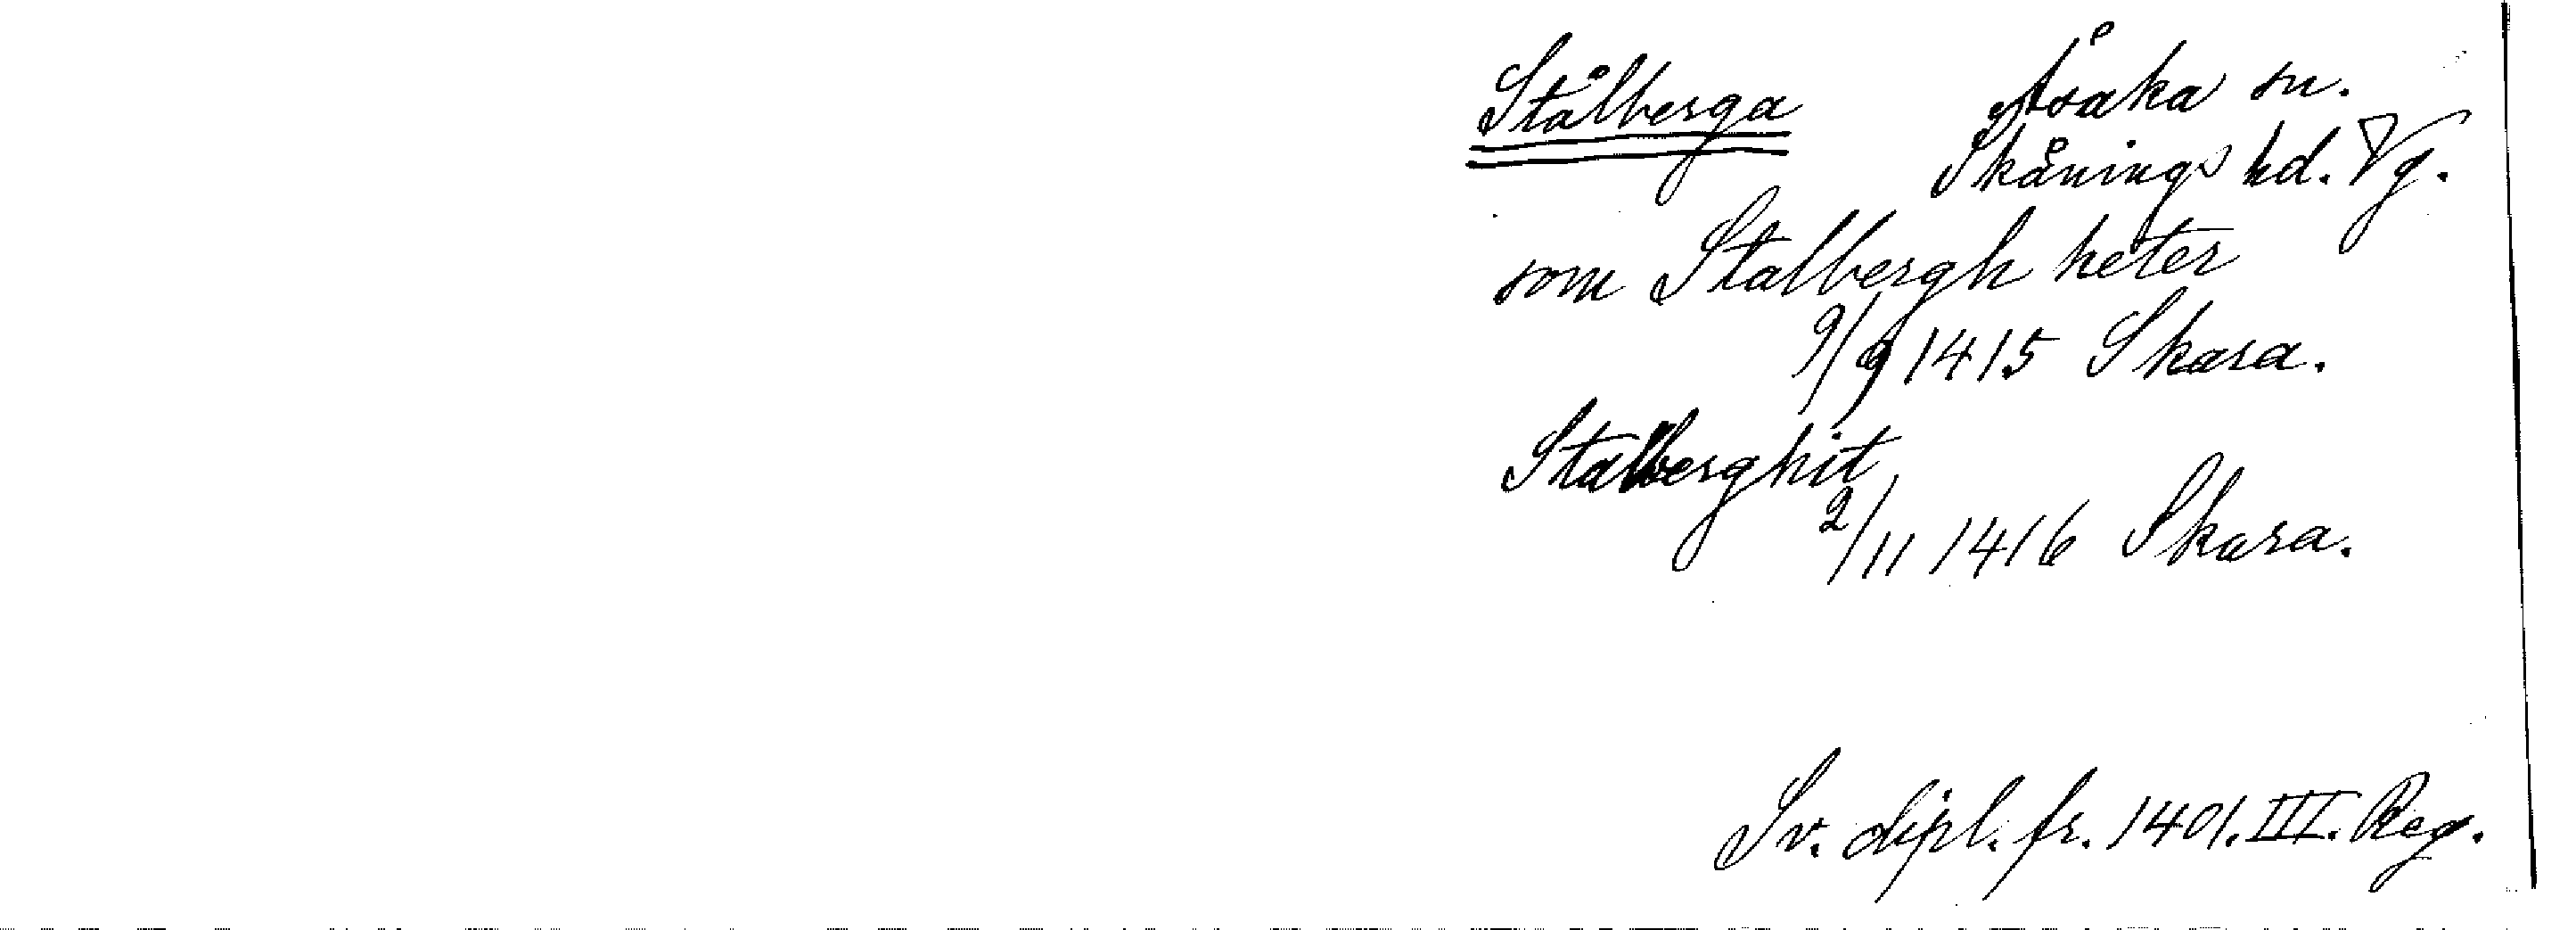 Stålberga Åsaka sn.
Skånings hd. Vg.
som Stalbergh heter
9/9 1415 Skara.
Stalberghit
2/11 1416 Skara.
Sv. dipl. fr. 1401. III. Reg.